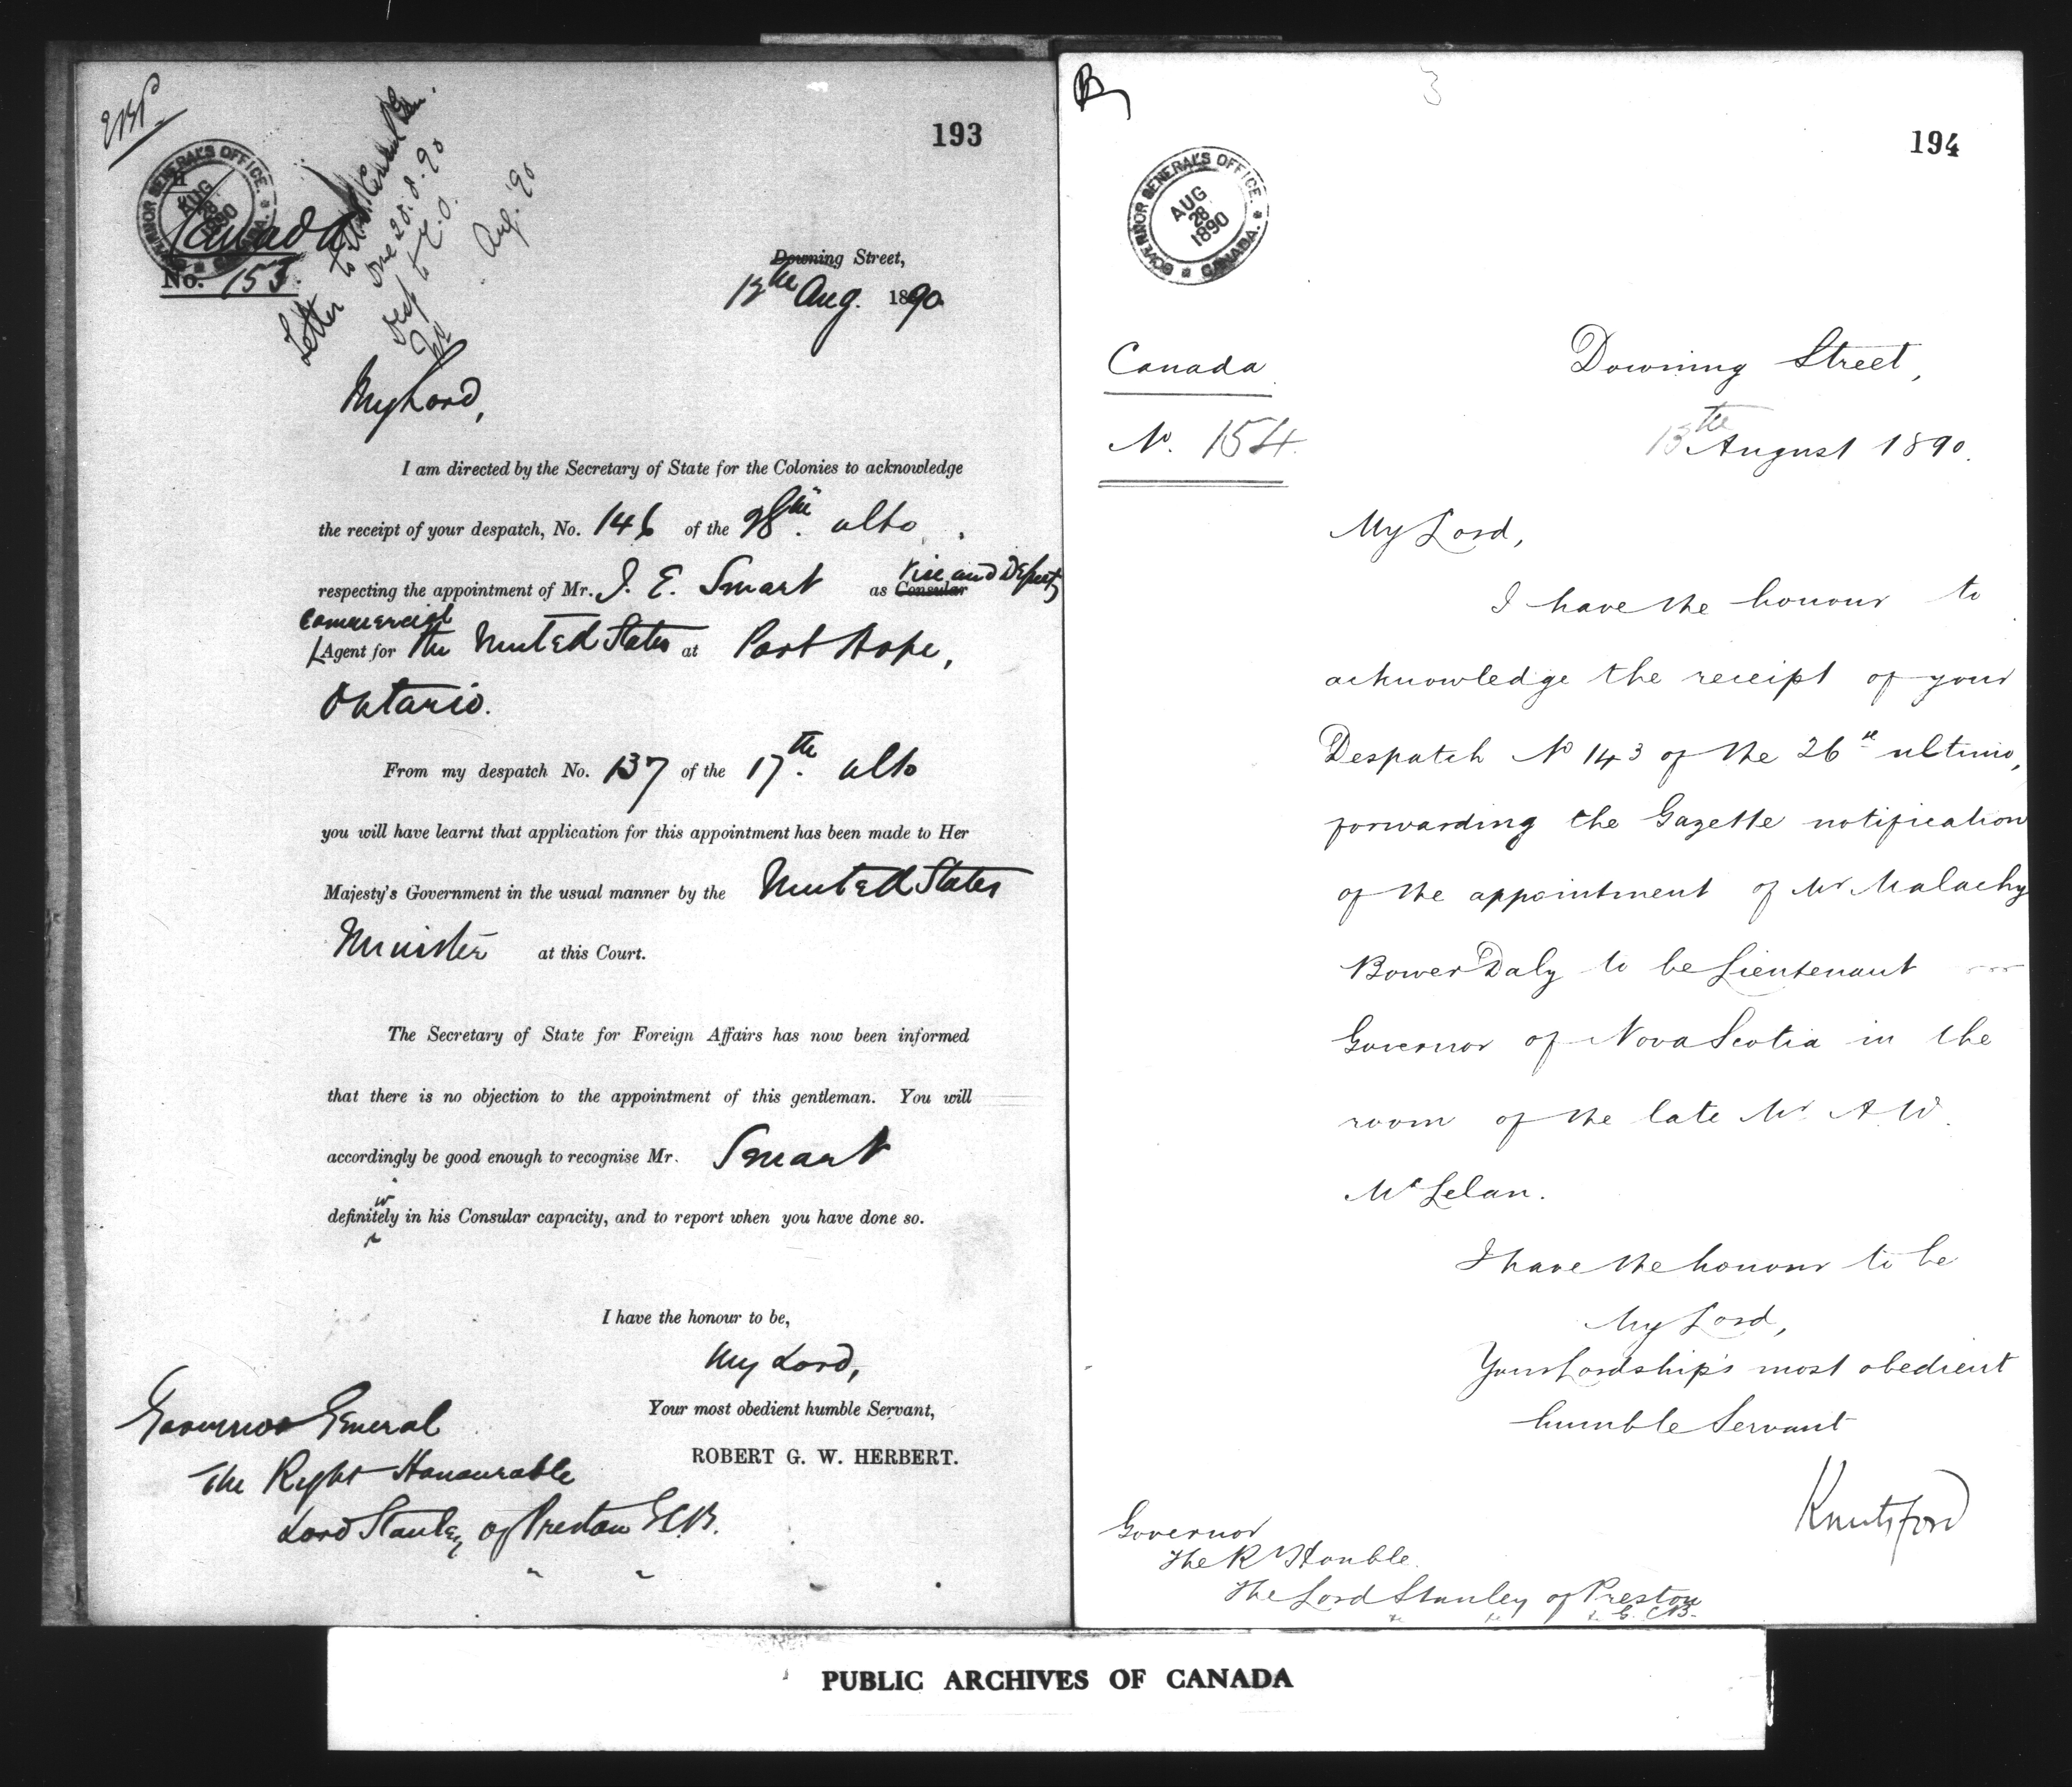 193
GOVERNOR GENERAL'S OFFICE.
AUG
28
1890
CANADA.
Canada
No. 153.
Letter to
Aug. '90
Downing Street,
13th Aug. 1890.
My Lord,
I am directed by the Secretary of State for the Colonies to acknowledge
the receipt of your despatch, No. 146 of the 28th. ulto.
respecting the appointment of Mr. J. E. Smart as Consular Vice and Deputy
Commercial
Agent for the United States at Port Hope,
Ontario.
From my despatch No. 137 of the 17th. ulto
you will have learnt that application for this appointment has been made to Her
Majesty's Government in the usual manner by the United States
Minister at this Court.
The Secretary of State for Foreign Affairs has now been informed
that there is no objection to the appointment of this gentleman. You will
accordingly be good enough to recognise Mr. Smart
definitely in his Consular capacity, and to report when you have done so.
I have the honour to be,
My Lord,
Your most obedient humble Servant,
ROBERT G. W. HERBERT.
Governor General
The Right Honourable
Lord Stanley of Preston G.C.B.
194
GOVERNOR GENERAL'S OFFICE.
AUG
28
1890
CANADA.
Canada
No. 154.
Downing Street,
13th August 1890.
My Lord,
I have the honour to
acknowledge the receipt of your
Despatch No 143 of the 26th ultimo,
forwarding the Gazette notification
of the appointment of Mr Malachy
Bower Daly to be Lieutenant
Governor of Nova Scotia in the
room of the late Mr. A. W.
McLelan.
I have the honour to be
My Lord,
Your Lordship's most obedient
humble Servant
Knutsford
Governor
The Rt Honble.
The Lord Stanley of Preston
G.C.B.
PUBLIC ARCHIVES OF CANADA